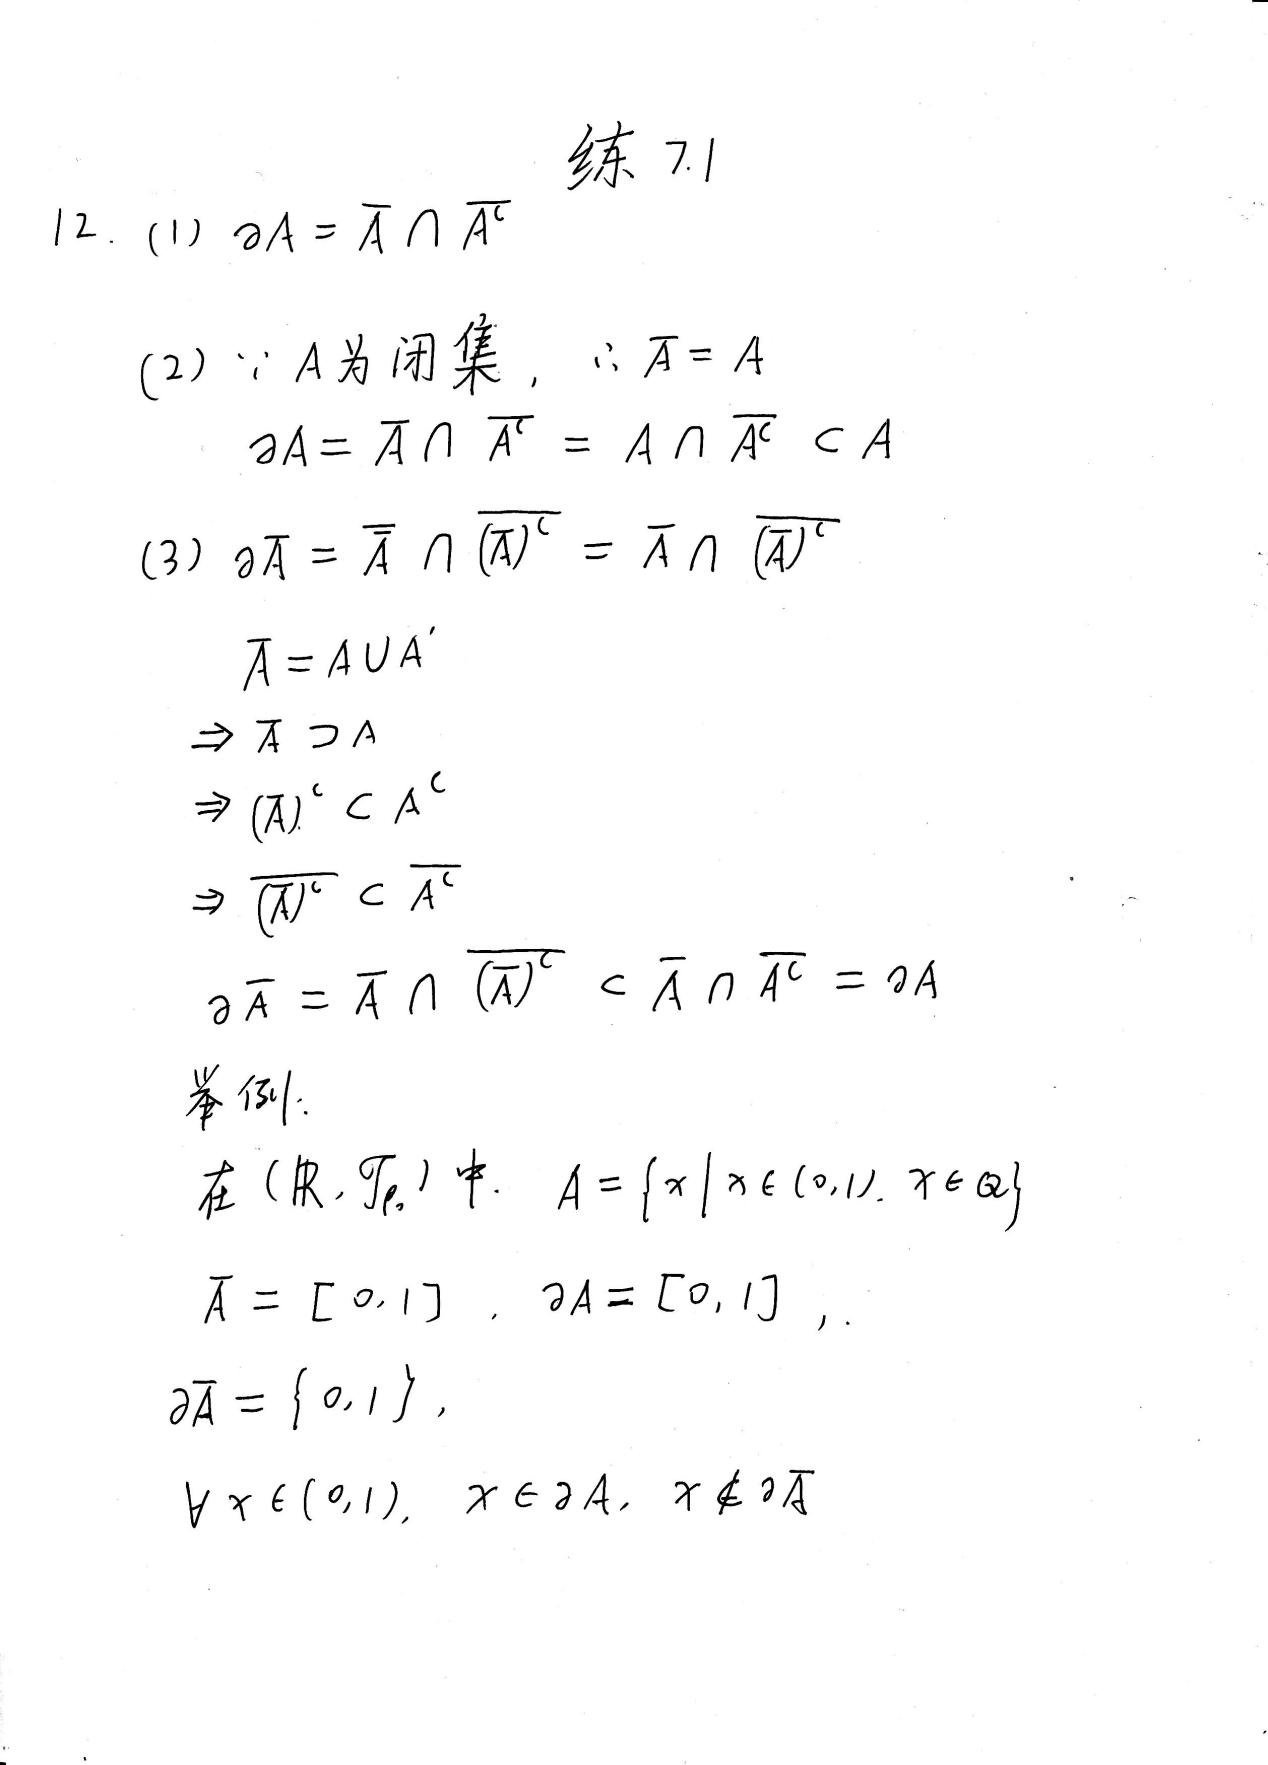 练 7.1
12. (1) ∂A = A̅ ∩ \overline{A^c}
(2) ∵ A为闭集, ∴ A̅ = A
∂A = A̅ ∩ \overline{A^c} = A ∩ \overline{A^c} ⊂ A
(3) ∂A̅ = \overline{A̅} ∩ \overline{(A̅)^c} = A̅ ∩ \overline{(A̅)^c}
A̅ = A∪A′
⇒ A̅ ⊃ A
⇒ (A̅)^c ⊂ A^c
⇒ \overline{(A̅)^c} ⊂ \overline{A^c}
∂A̅ = A̅ ∩ \overline{(A̅)^c} ⊂ A̅ ∩ \overline{A^c} = ∂A
举例:
在 (ℝ, 𝒯_e) 中. A = {x | x∈(0,1). x∈ℚ}
A̅ = [0,1] , ∂A = [0,1] ,
∂A̅ = {0,1},
∀x∈(0,1), x∈∂A, x∉∂A̅